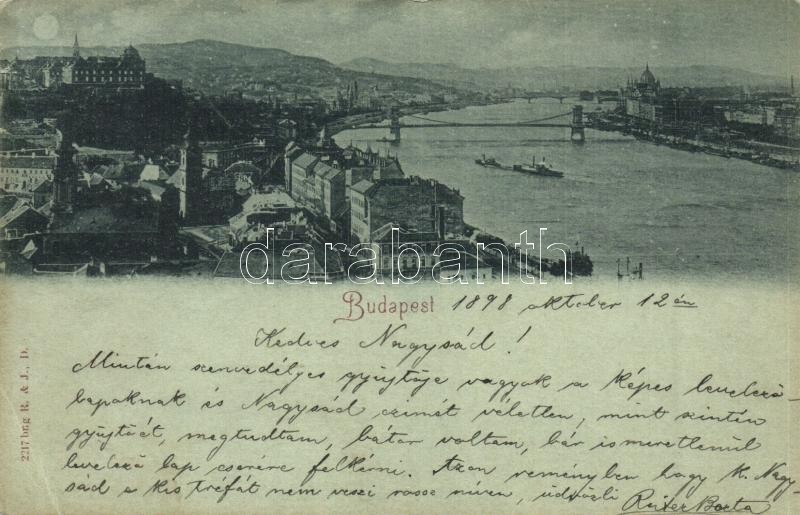 darabanth
Budapest 1898 oktober 12 én
Kedves Nagysád!
Miután szenvedélyes gyüjtője vagyok a képes levelező-
lapoknak és Nagysád czimét véletlen, mint szintén
gyüjtőét, megtudtam, bátor voltam, bár ismeretlenül
levelező lap cserére felkérni. Azon reményben hogy k. Nagy-
sád e kis tréfát nem veszi rossz néven, üdvözli
2217 brg R. & J., D.